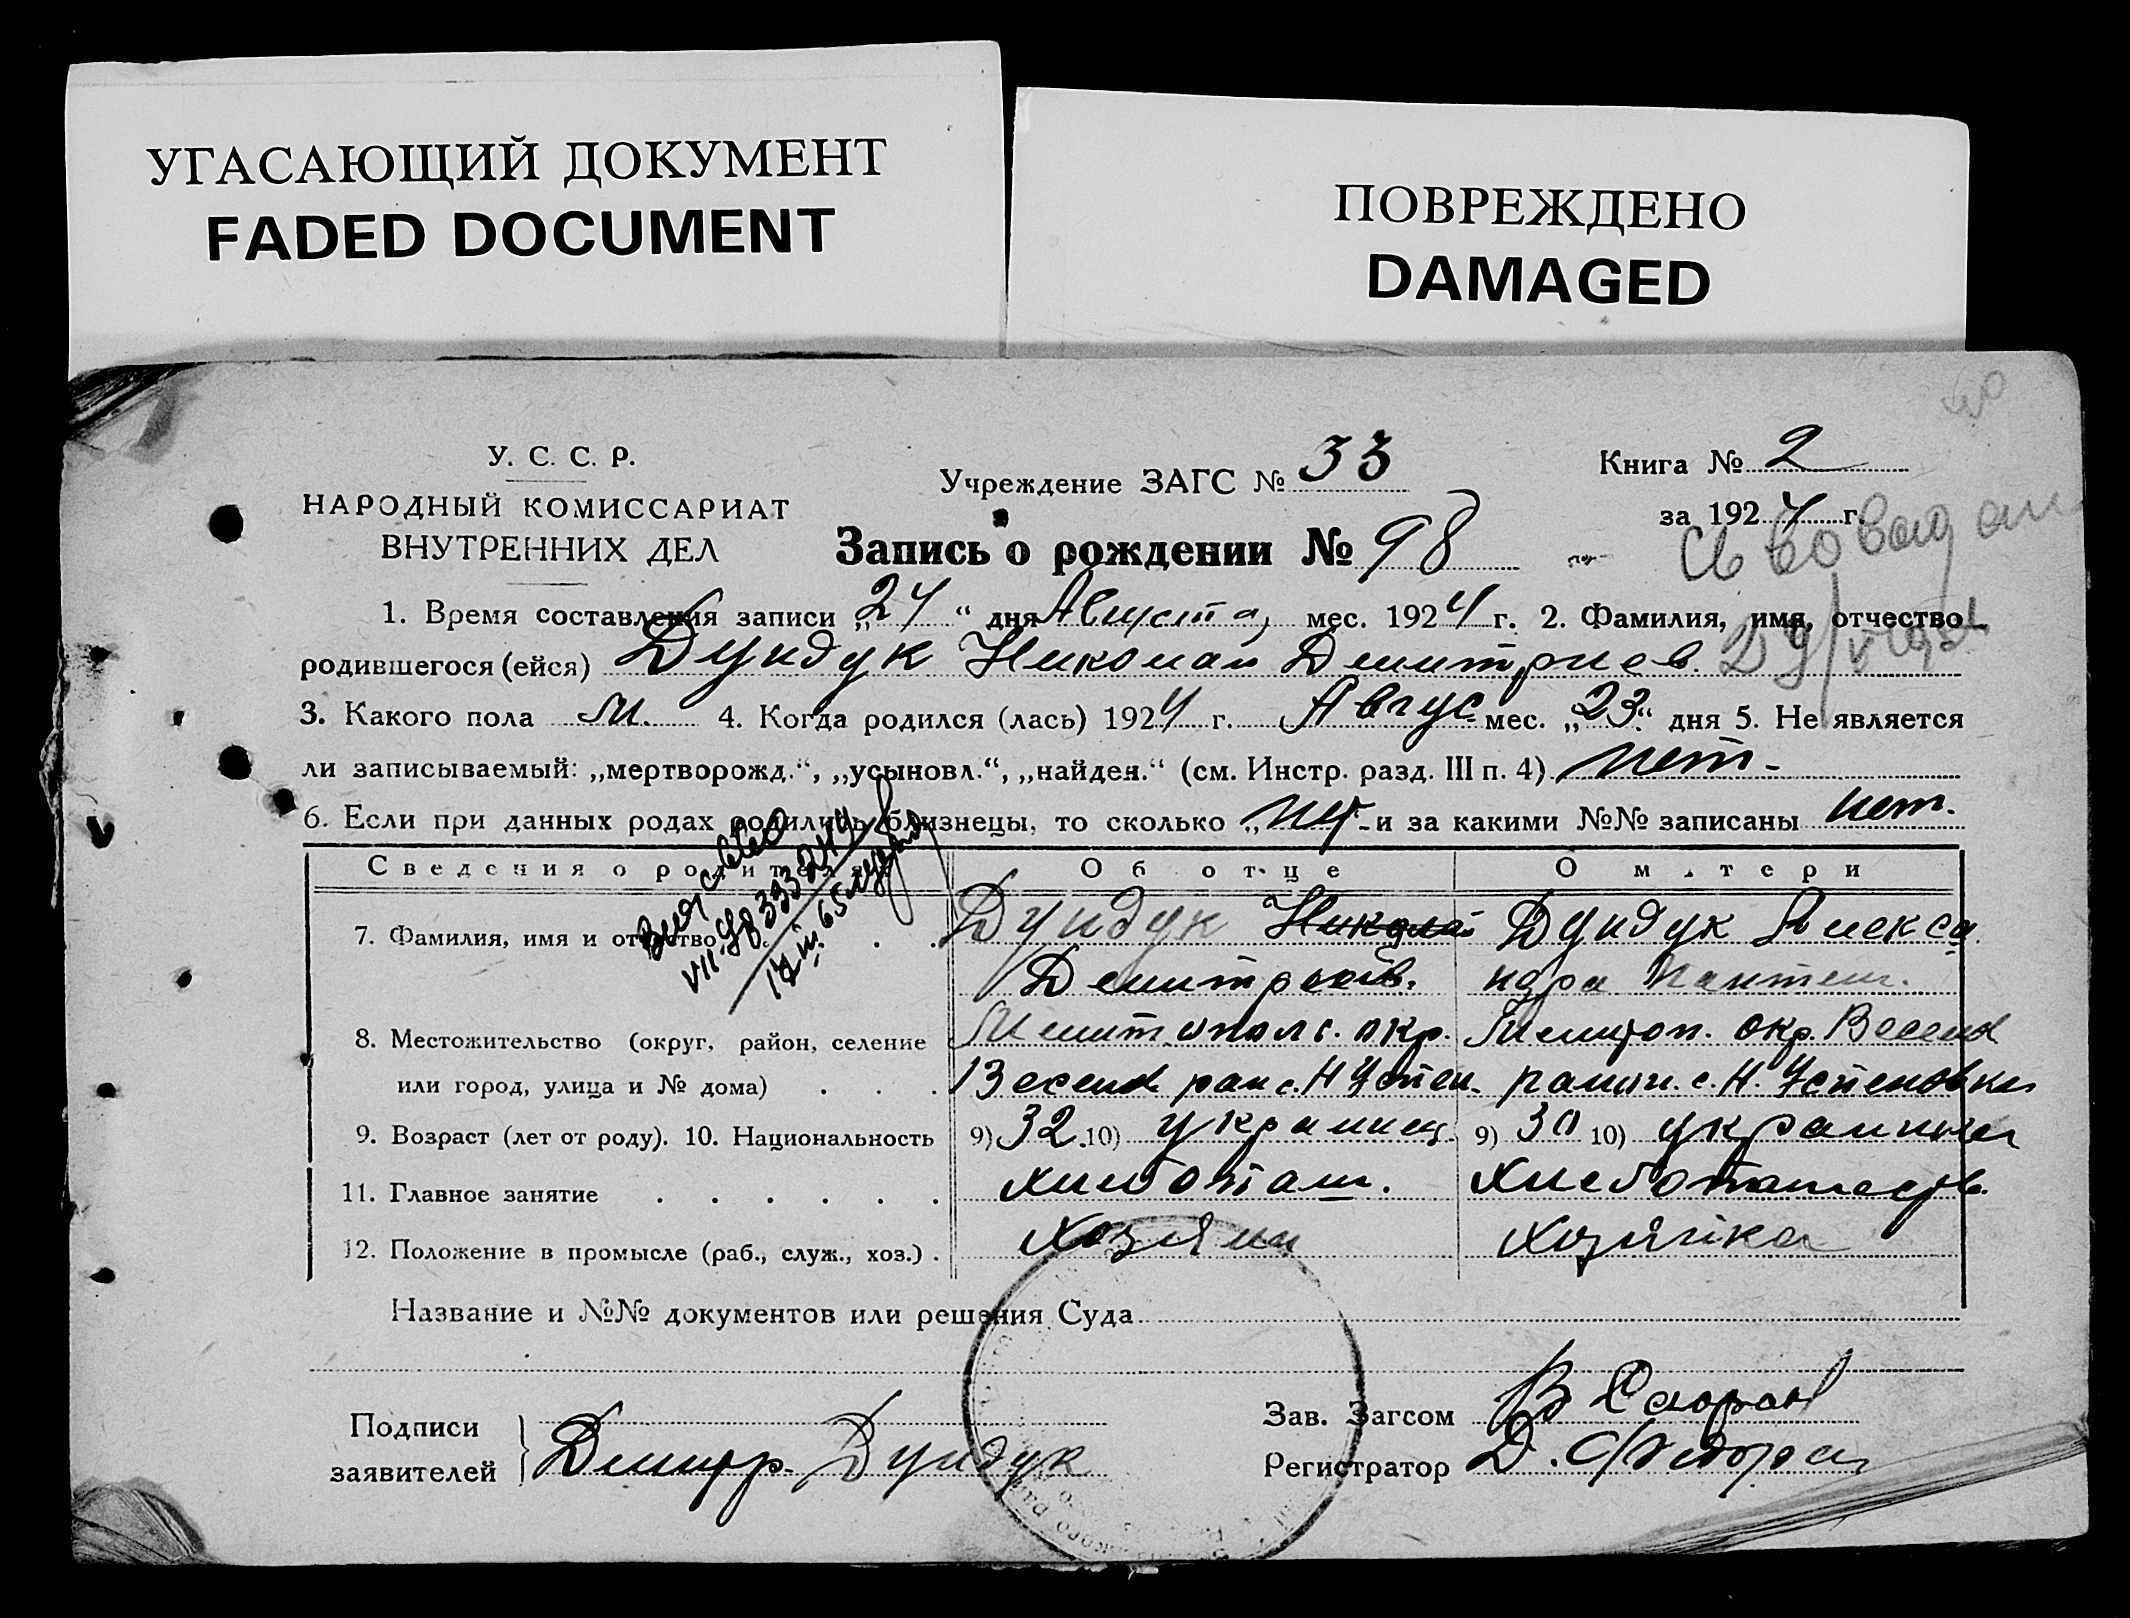 УГАСАЮЩИЙ ДОКУМЕНТ
FADED DOCUMENT
ПОВРЕЖДЕНО
DAMAGED
У. С. С. Р.
НАРОДНЫЙ КОМИССАРИАТ
ВНУТРЕННИХ ДЕЛ
Учреждение ЗАГС № 33
Книга № 2
за 1924 г.
Запись о рождении № 98
1. Время составления записи „24“ дня Августа мес. 1924 г. 2. Фамилия, имя, отчество
родившегося (ейся) Дундук Николай Дмитриев.
3. Какого пола м. 4. Когда родился (лась) 1924 г. Авгус мес. „23“ дня 5. Не является
ли записываемый: „мертворожд.“, „усыновл.“, „найден.“ (см. Инстр. разд. III п. 4) нет -
6. Если при данных родах родились близнецы, то сколько „нет“ и за какими №№ записаны нет.
Сведения о родителях Об отце О матери
7. Фамилия, имя и отчество Дундук Николай Дундук Алекса
ндра
8. Местожительство (округ, район, селение Мелитопольс. окр. Мелитоп. окр. Весел
или город, улица и № дома) Весел рай с. Н Успен. район. с. Н. Успеновка
9. Возраст (лет от роду). 10. Национальность 9) 32 10) украинец 9) 30 10) украинка
11. Главное занятие хлебопаш. хлебопашеств.
12. Положение в промысле (раб., служ., хоз.) Хозяин Хозяйка
Название и №№ документов или решения Суда
Подписи
заявителей Дмитр. Дундук
Зав. Загсом
Регистратор Д.